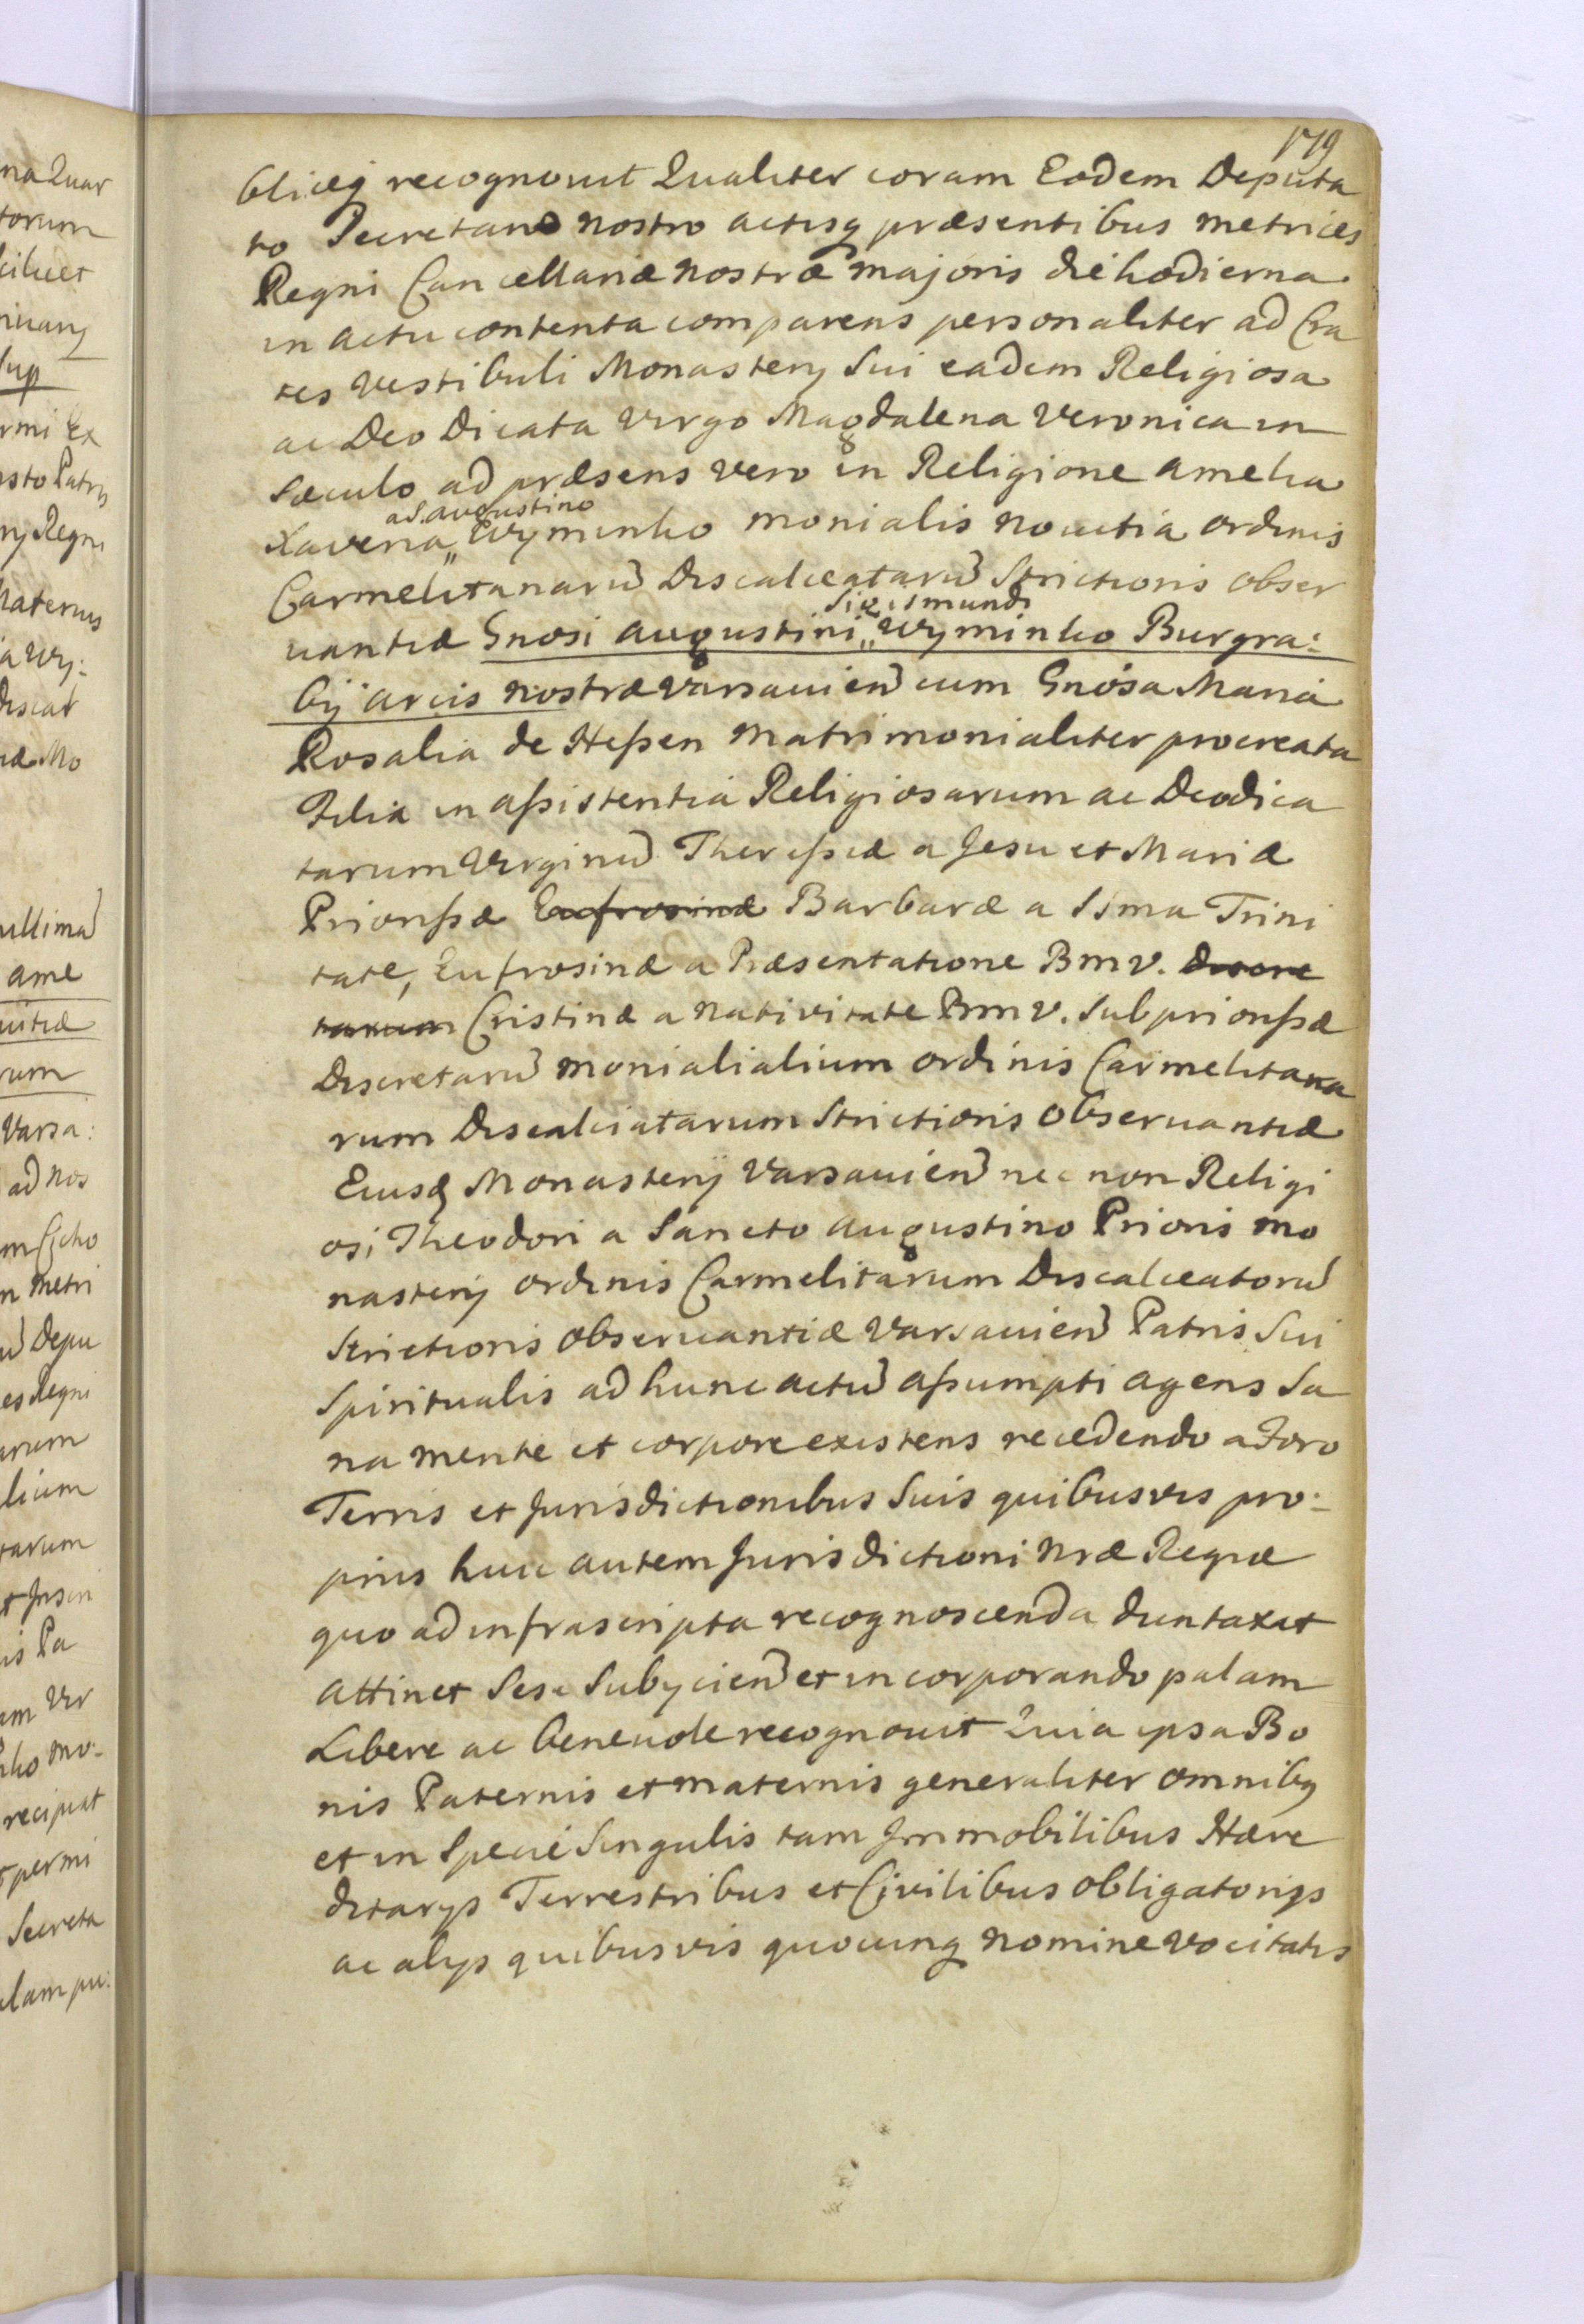 179
bliceq recognovit Qualiter coram Eodem Deputa
to Secretario nostro actisq præsentibus metrices
Regni Cancellariæ nostræ majoris die hodierna
in actu contenta comparens personaliter ad Cra
tes vestibuli Monasterij Sui eadem Religiosa
ac Deo Dicata Virgo Magdalena Veronica in
sæculo ad præsens vero in Religione Amelia
a S. Augustino
Xaveria „ Wyminko monialis novitia ordinis
Carmelitanaru Discalceataru Strictioris obser
Sigismundi
vantiæ Gnosi Augustini „ Wyminko Burgra:
bij arcis nostræ Varsavien cum Gnosa Maria
Rosalia de Hessen Matrimonialiter procreata
Filia in assistentia Religiosarum ac Deodica
tarum Virginu Theressiæ a Jesu et Mariæ
Priorissæ Eufrosinæ Barbaræ a SSma Trini
tate, Eufrosinæ a Præsentatione BMV. discre
tarum Cristinæ a Nativitate BMV. Subpriorissæ
Discretaru monialialium ordinis Carmelitana
rum Discalciatarum Strictioris observantiæ
Eiusq Monasterij Varsavien nec non Religi
osi Theodori a Sancto Augustino Prioris mo
nasterij ordinis Carmelitarum Discalceatoru
Strictioris observantiæ Varsavien Patris Sui
Spiritualis ad hunc actu assumpti agens Sa
na mente et corpore existens recedendo a Foro
Terris et Jurisdictionibus Suis quibusvis pro:
prius huic autem Jurisdictioni Nræ Regiæ
quo ad infrascripta recognoscenda duntaxat
attinet Sese Subijcien et incorporando palam
Libere ac benevole recognovit Quia ipsa Bo
nis Paternis et maternis generaliter omnibq
et in Specie Singulis tam Immobilibus Hære
ditarys Terrestribus et Civilibus obligatorys
ac alys quibusvis quocunq nomine vocitatis